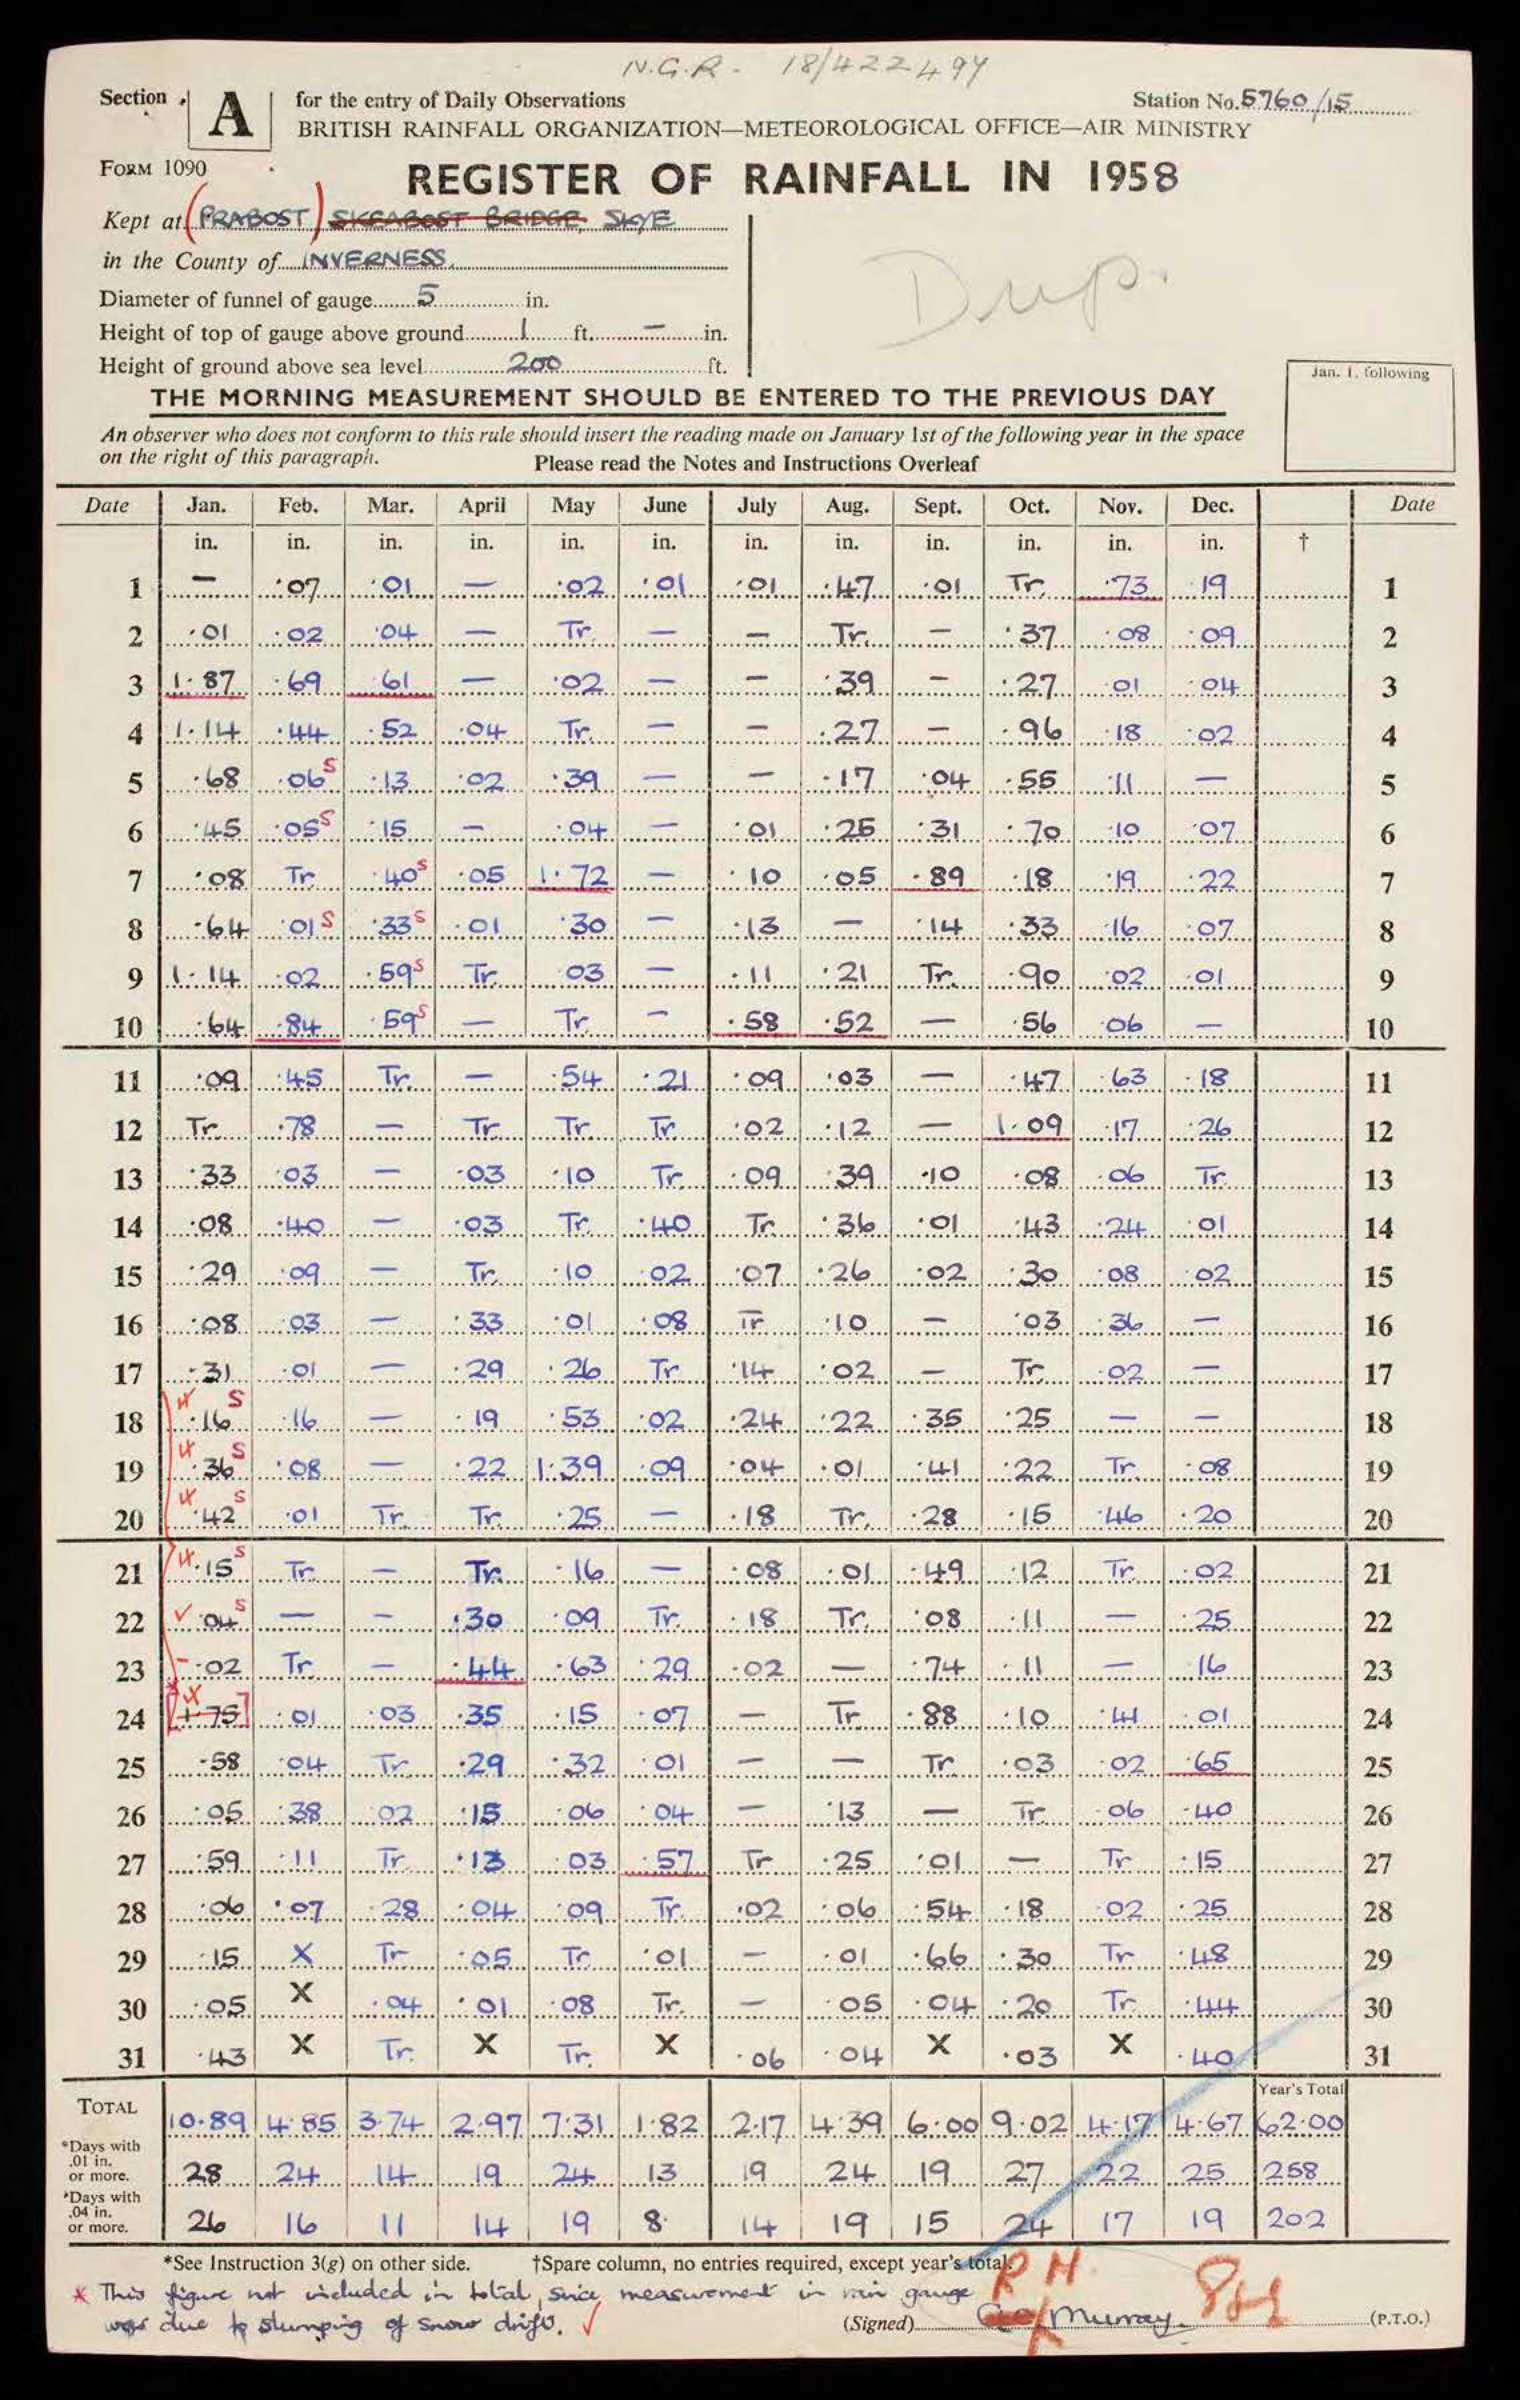 N.G.R. 18/422494
Section A for the entry of Daily Observations Station No. 5760/15
BRITISH RAINFALL ORGANIZATION—METEOROLOGICAL OFFICE—AIR MINISTRY
FORM 1090
REGISTER OF RAINFALL IN 1958
Kept at (PRABOST) SKEABOST BRIDGE, SKYE
in the County of INVERNESS.
Dup.
Diameter of funnel of gauge 5 in.
Height of top of gauge above ground 1 ft. — in.
Height of ground above sea level 200 ft.
Jan. 1, following
THE MORNING MEASUREMENT SHOULD BE ENTERED TO THE PREVIOUS DAY
An observer who does not conform to this rule should insert the reading made on January 1st of the following year in the space
on the right of this paragraph. Please read the Notes and Instructions Overleaf
Date Jan. Feb. Mar. April May June July Aug. Sept. Oct. Nov. Dec. Date
in. in. in. in. in. in. in. in. in. in. in. in. †
1 — .07 .01 — .02 .01 .01 .47 .01 Tr. .73 .19 1
2 .01 .02 .04 — Tr. — — Tr. — .37 .08 .09 2
3 1.87 .69 .61 — .02 — — .39 — .27 .01 .04 3
4 1.14 .44 .52 .04 Tr. — — .27 — .96 .18 .02 4
5 .68 .06 S .13 .02 .39 — — .17 .04 .55 .11 — 5
6 .45 .05 S .15 — .04 — .01 .25 .31 .70 .10 .07 6
7 .08 Tr. .40 S .05 1.72 — .10 .05 .89 .18 .19 .22 7
8 .64 .01 S .33 S .01 .30 — .13 — .14 .33 .16 .07 8
9 1.14 .02 .59 S Tr. .03 — .11 .21 Tr. .90 .02 .01 9
10 .64 .84 .59 S — Tr. — .58 .52 — .56 .06 — 10
11 .09 .45 Tr. — .54 .21 .09 .03 — .47 .63 .18 11
12 Tr. .78 — Tr. Tr. Tr. .02 .12 — 1.09 .17 .26 12
13 .33 .03 — .03 .10 Tr. .09 .39 .10 .08 .06 Tr. 13
14 .08 .40 — .03 Tr. .40 Tr. .36 .01 .43 .24 .01 14
15 .29 .09 — Tr. .10 .02 .07 .26 .02 .30 .08 .02 15
16 .08 .03 — .33 .01 .08 Tr .10 — .03 .36 — 16
17 .31 .01 — .29 .26 Tr. .14 .02 — Tr. .02 — 17
18 .16 S .16 — .19 .53 .02 .24 .22 .35 .25 — — 18
19 .36 S .08 — .22 1.39 .09 .04 .01 .41 .22 Tr. .08 19
20 .42 S .01 Tr. Tr. .25 — .18 Tr. .28 .15 .46 .20 20
21 .15 S Tr. — Tr. .16 — .08 .01 .49 .12 Tr. .02 21
22 ✓ .04 S — — .30 .09 Tr. .18 Tr. .08 .11 — .25 22
23 .02 Tr. — .44 .63 .29 .02 — .74 .11 — .16 23
24 [1.75] .01 .03 .35 .15 .07 — Tr. .88 .10 .41 .01 24
25 .58 .04 Tr. .29 .32 .01 — — Tr. .03 .02 .65 25
26 .05 .38 .02 .15 .06 .04 — .13 — Tr. .06 .40 26
27 .59 .11 Tr. .13 .03 .57 Tr .25 .01 — Tr .15 27
28 .06 .07 .28 .04 .09 Tr. .02 .06 .54 .18 .02 .25 28
29 .15 X Tr .05 Tr. .01 — .01 .66 .30 Tr .48 29
30 .05 X .04 .01 .08 Tr. — .05 .04 .20 Tr .44 30
31 .43 X Tr. X Tr. X .06 .04 X .03 X .40 31
Year's Total
TOTAL 10.89 4.85 3.74 2.97 7.31 1.82 2.17 4.39 6.00 9.02 4.17 4.67 62.00
*Days with
.01 in.
or more. 28 24 14 19 24 13 19 24 19 27 22 25 258
*Days with
.04 in.
or more. 26 16 11 14 19 8 14 19 15 24 17 19 202
*See Instruction 3(g) on other side. †Spare column, no entries required, except year's total.
* This figure not included in total, since measurement in rain gauge
was due to slumping of snow drift. ✓
RH
(Signed) Murray. (P.T.O.)